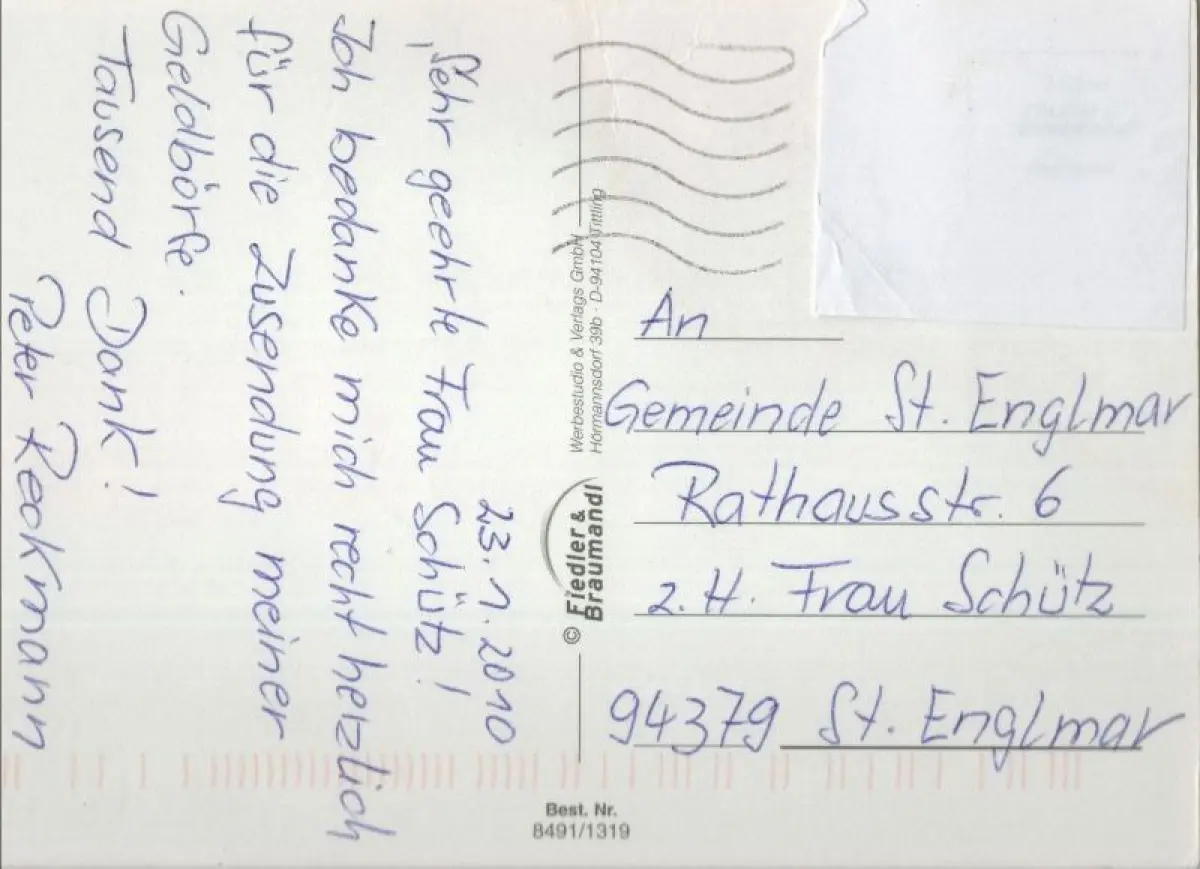 23.1.2010
Sehr geehrte Frau Schütz!
Ich bedanke mich recht herzlich
für die Zusendung meiner
Geldbörse.
Tausend Dank!
Peter Reckmann
Werbestudio & Verlags GmbH
Hörmannsdorf 39b · D-94104 Tittling
© Fiedler &
Braumandl
An
Gemeinde St. Englmar
Rathausstr. 6
z. H. Frau Schütz
94379 St. Englmar
Best. Nr.
8491/1319